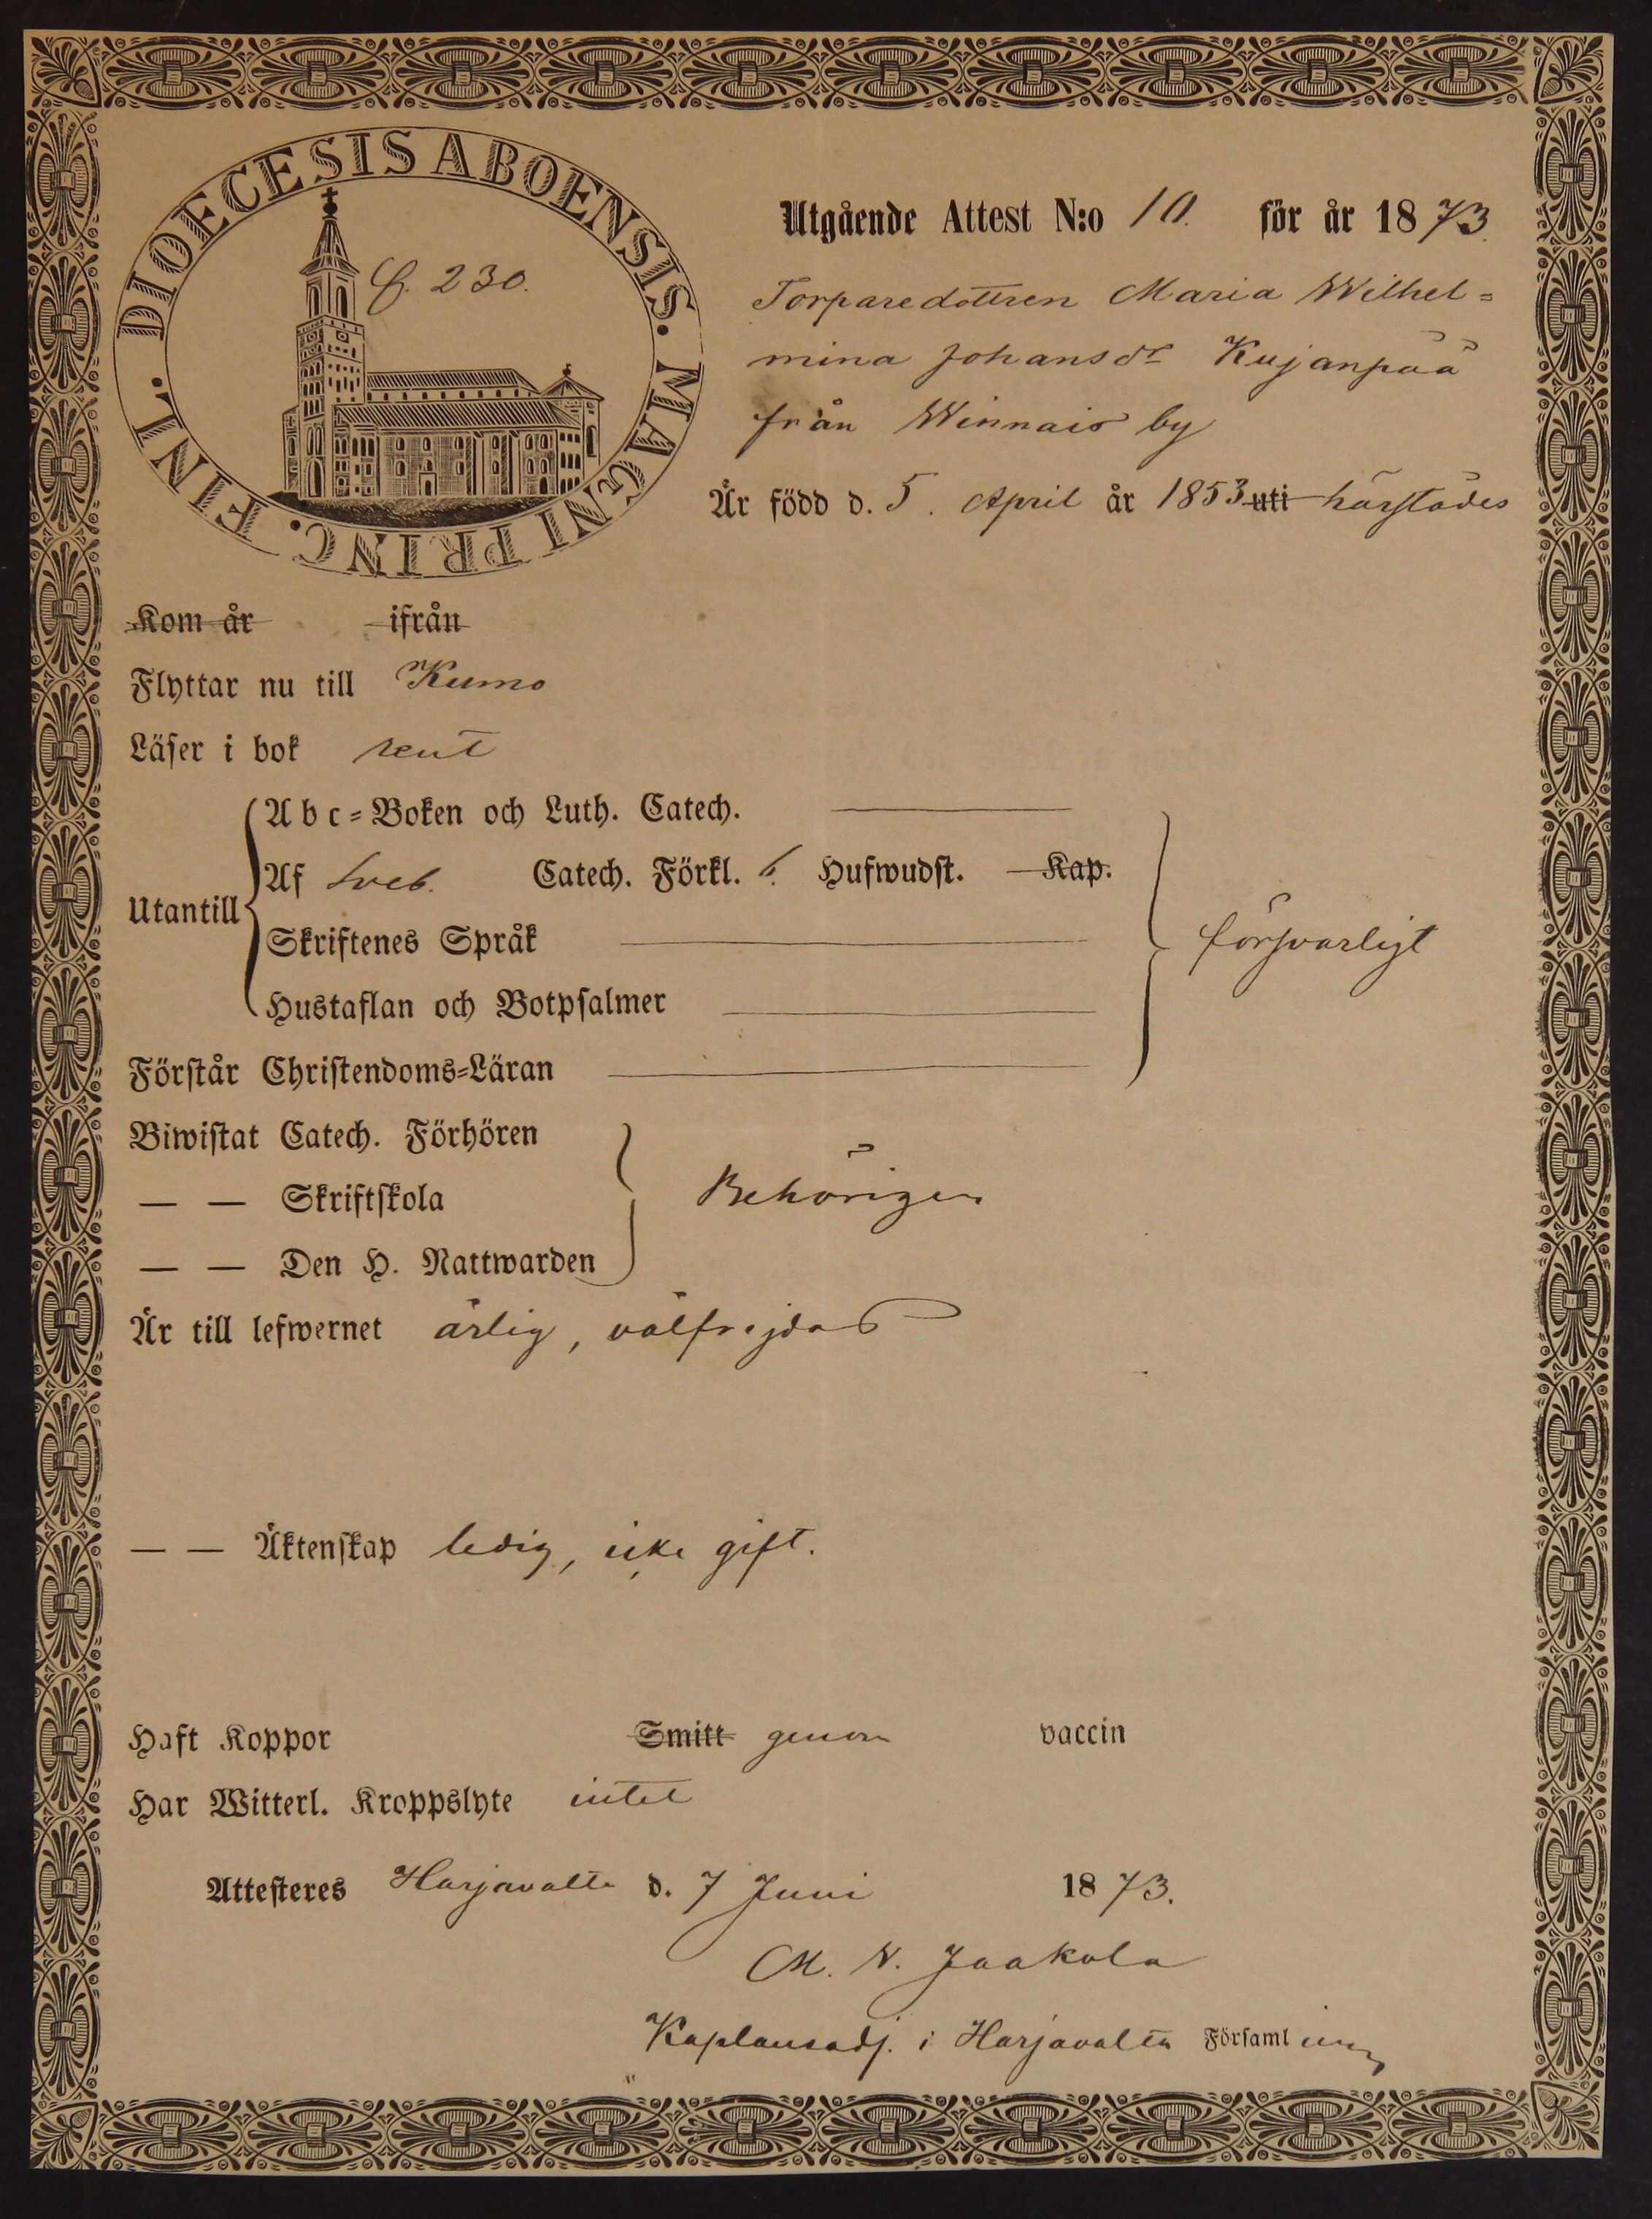 DIOECESIS ABOENSIS. MAGNI PRINC. FINL.
f. 230.
Utgående Attest N:o 10. för år 1873.
Torparedottren Maria Wilhel=
mina Johansdr Kujanpää
från Winnais by
Är född d. 5. April år 1853 uti härstädes
Kom år ifrån
Flyttar nu till Kumo
Läser i bok rent
Utantill
Abc=Boken och Luth. Catech.
Af Sveb. Catech. Förkl. 6. Hufwudst. Kap.
Skriftenes Språk
Hustaflan och Botpsalmer
försvarligt
Förstår Christendoms=Läran
Biwistat Catech. Förhören
— — Skriftskola
— — Den H. Nattwarden
Behörigen
Är till lefwernet ärlig, välfrejdad
— — Äktenskap ledig, icke gift.
Haft Koppor Smitt genom vaccin
Har Witterl. Kroppslyte intet
Attesteres Harjavalta d. 7 Juni 1873.
M. V. Jaakola
Kaplansadj. i Harjavalta Församling